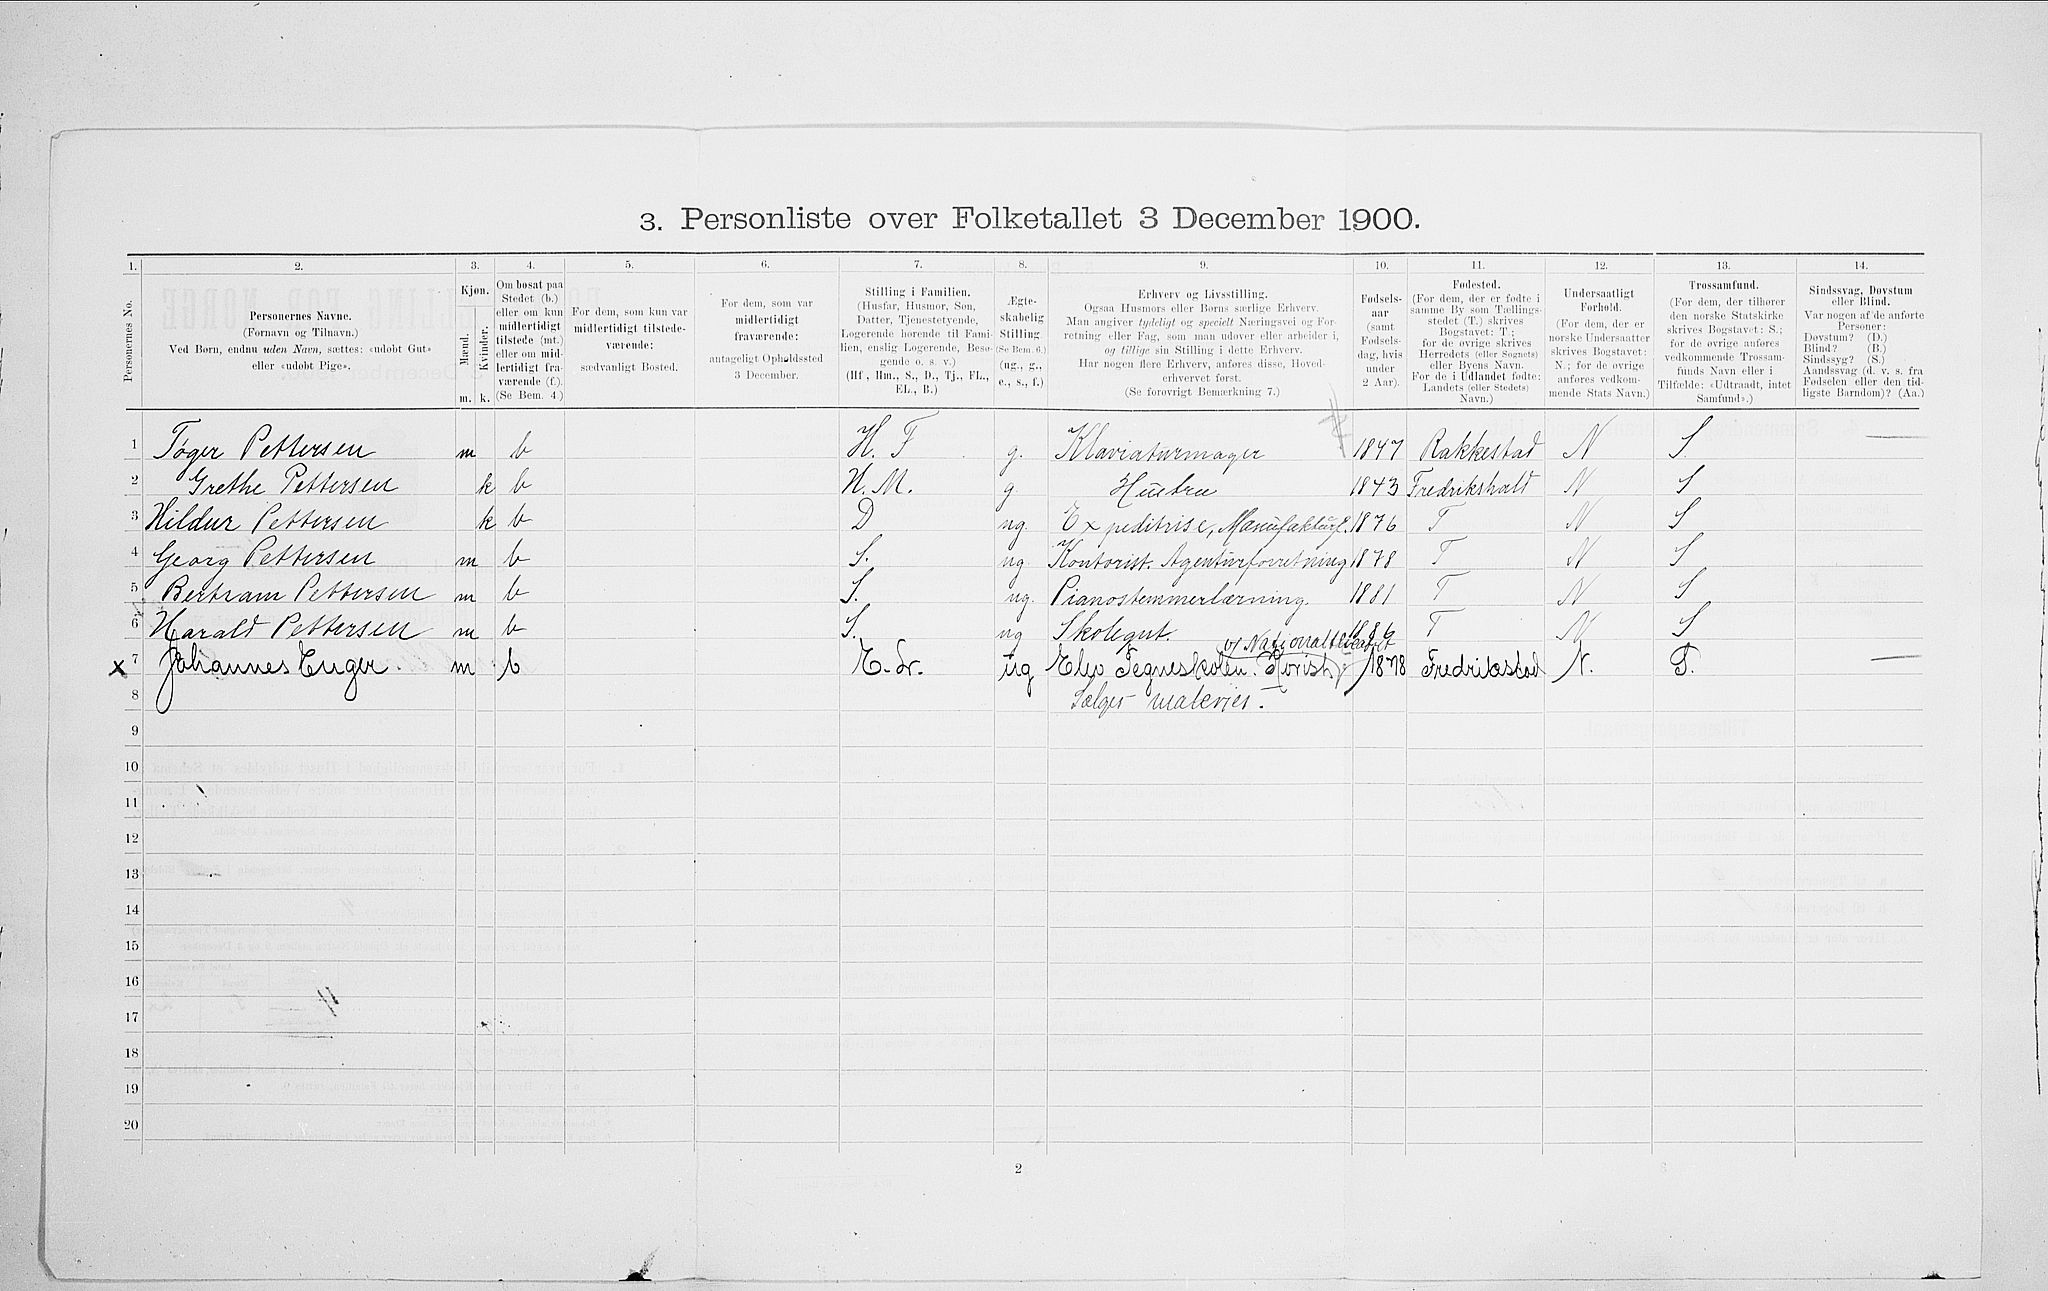 3. Personliste over Folketallet 3 December 1900.
1. 2. 3. 4. 5. 6. 7. 8. 9. 10. 11. 12. 13. 14.
Personernes No.
Personernes Navne.
(Fornavn og Tilnavn.)
Ved Børn, endnu uden Navn, sættes: «udobt Gut»
eller «udobt Pige».
Kjøn.
Mænd.
Kvinder.
m. k.
Om bosat paa
Stedet (b.)
eller om kun
midlertidigt
tilstede (mt.)
eller om mid-
lertidigt fra-
værende (f.).
(Se Bem. 4.)
For dem, som kun var
midlertidigt tilstede-
værende:
sædvanligt Bosted.
For dem, som var
midlertidigt
fraværende:
antageligt Opholdssted
3 December.
Stilling i Familien.
(Husfar, Husmor, Søn,
Datter, Tjenestetyende,
Logerende hørende til Fami-
lien, enslig Logerende, Besø-
gende o. s. v.)
(Hf., Hm., S., D., Tj., FL.,
EL., B.)
Ægte-
skabelig
Stilling.
(Se Bem. 6.)
(ug., g.,
e., s., f.)
Erhverv og Livsstilling.
Ogsaa Husmors eller Børns særlige Erhverv.
Man angiver tydeligt og specielt Næringsvei og For-
retning eller Fag, som man udøver eller arbeider i,
og tillige sin Stilling i dette Erhverv.
Har nogen flere Erhverv, anføres disse, Hoved-
erhvervet først.
(Se forøvrigt Bemærkning 7.)
Fødsels-
aar
(samt
Fødsels-
dag, hvis
under
2 Aar).
Fødested.
(For dem, der er fødte i
samme By som Tællings-
stedet (T.) skrives
Bogstavet: T.;
for de øvrige skrives
Herredets (eller Sognets)
eller Byens Navn.
For de i Udlandet fødte:
Landets (eller Stedets)
Navn.)
Undersaatligt
Forhold.
(For dem, der er
norske Undersaatter
skrives Bogstavet:
N.; for de øvrige
anføres vedkom-
mende Stats Navn.)
Trossamfund.
(For dem, der tilhører
den norske Statskirke
skrives Bogstavet: S.;
for de øvrige anføres
vedkommende Trossam-
funds Navn eller i
Tilfælde: «Udtraadt, intet
Samfund».)
Sindssvag, Døvstum
eller Blind.
Var nogen af de anførte
Personer:
Døvstum? (D.)
Blind? (B.)
Sindssyg? (S.)
Aandssvag (d. v. s. fra
Fødselen eller den tid-
ligste Barndom)? (Aa.)
1 Tøger Pettersen m b H. F g. Klaviaturmager 1847 Rakkestad N S
2 Grethe Pettersen k b H. M. g Hustru 1843 Fredrikshald N S
3 Hildur Pettersen k b D ug. Expeditrise, Manufakturf. 1876 T N S
4 Georg Pettersen m b S. ug Kontorist. Agenturforretning 1878 T N S
5 Bertram Pettersen m b S. ug. Pianostemmerlærning. 1881 T N S
6 Harald Pettersen m b S. ug Skolegut. 1886 T N S
x 7 Johannes Enger. m b E. Lr. ug Elev Tegneskolen. 1878 Fredrikstad N.
8 Sælges
9
10
11
12
13
14
15
16
17
18
19
20
2